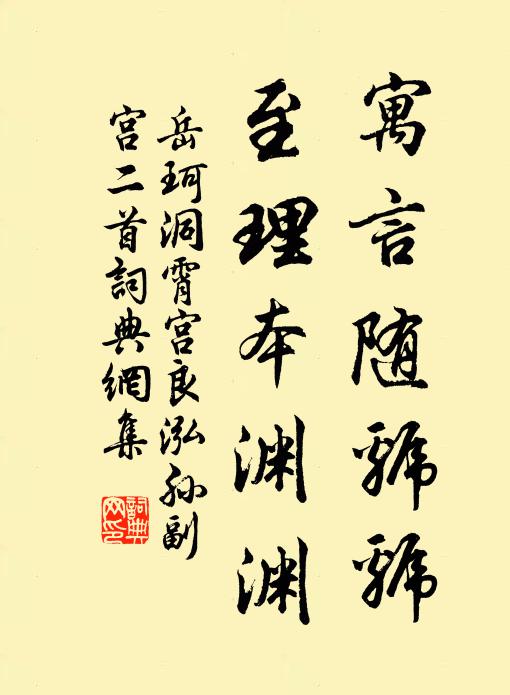 寓言随號號
至理本淵淵
岳珂洞霄宫良泓孫副
宫二首詞典網集
詞典网印